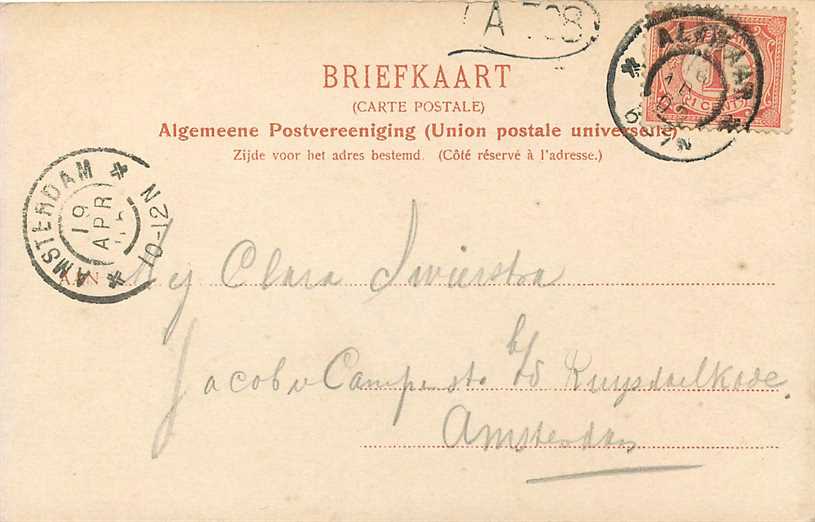 A 738
ALKMAAR
BRIEFKAART
(CARTE POSTALE)
Algemeene Postvereeniging (Union postale universelle)
Zijde voor het adres bestemd. (Côté réservé à l'adresse.)
AMSTERDAM
19
APR
10-12 N
AAN
Mej Clara Swierstra
Jacob v Campenst b/d Ruysdaelkade
Amsterdam